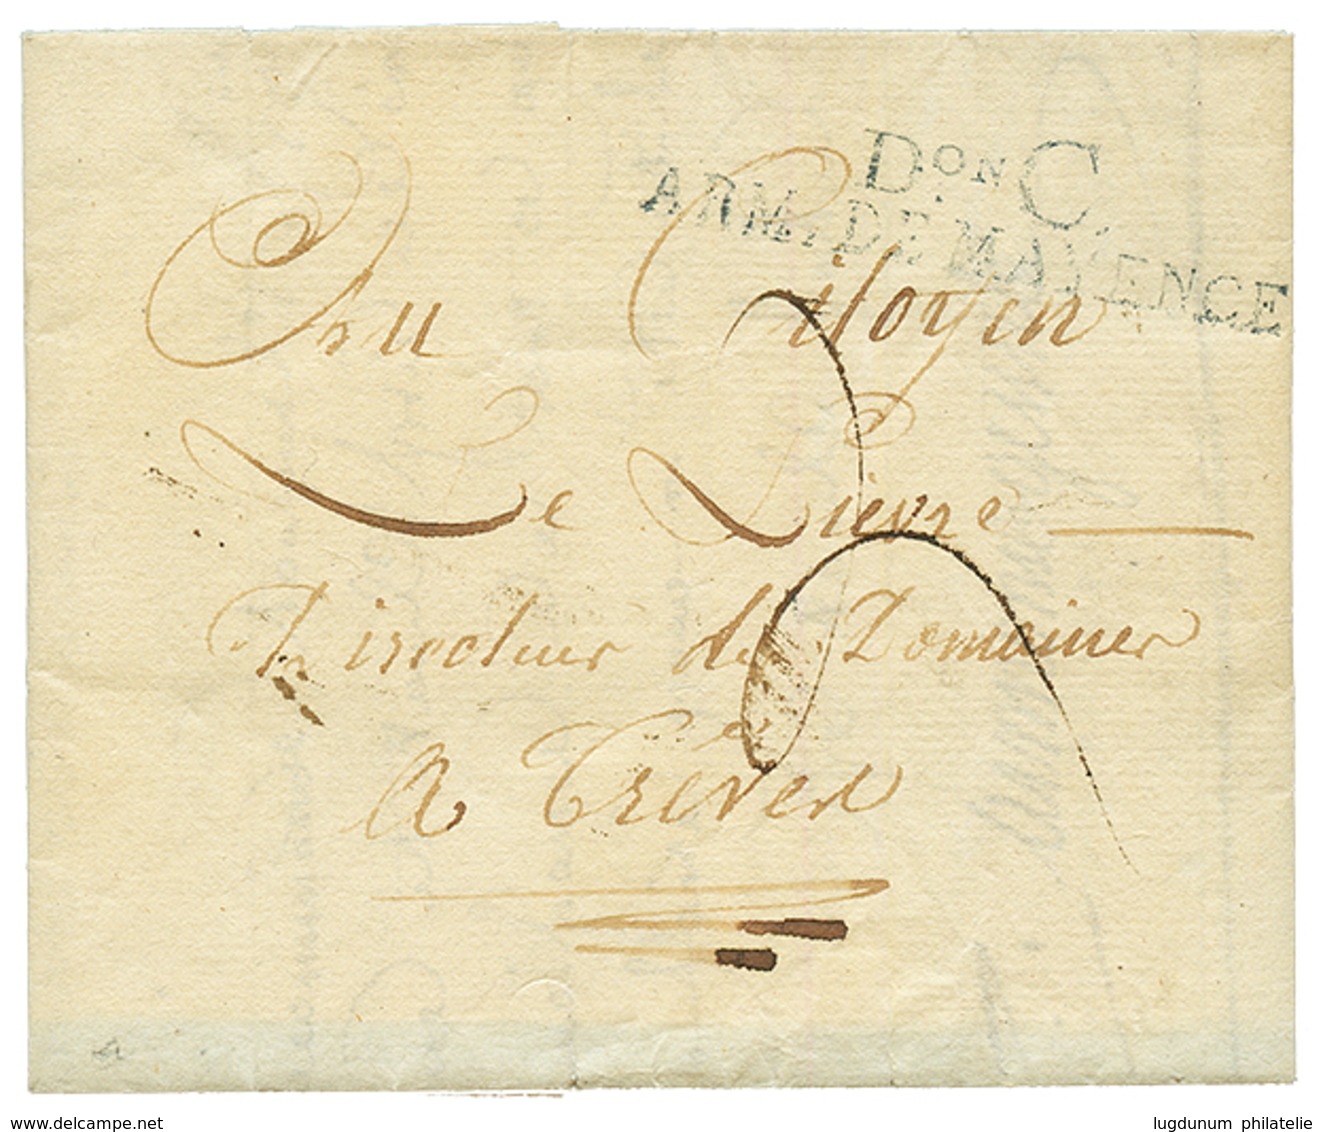 Don C.
ARM. DE MAYENCE
Au Citoyen
Le Lievre
Directeur des Domaines
A Trèves
www.delcampe.net
lugdunum philatelie